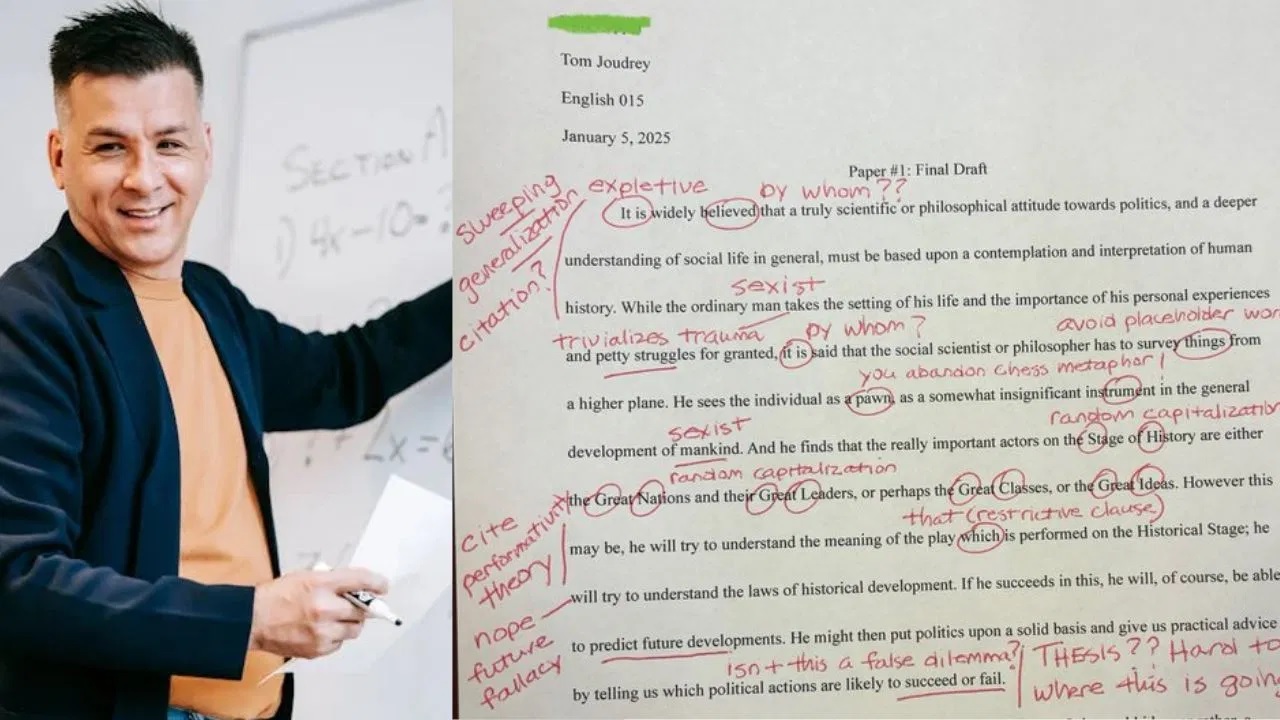 SECTION A
1) 4x-10=?
2x=
Tom Joudrey
English 015
January 5, 2025
Paper #1: Final Draft
sweeping generalization citation?
expletive
by whom??
It is widely believed that a truly scientific or philosophical attitude towards politics, and a deeper
understanding of social life in general, must be based upon a contemplation and interpretation of human
sexist
history. While the ordinary man takes the setting of his life and the importance of his personal experiences
trivializes trauma
by whom?
avoid placeholder
and petty struggles for granted, it is said that the social scientist or philosopher has to survey things from
you abandon chess metaphor!
a higher plane. He sees the individual as a pawn, as a somewhat insignificant instrument in the general
sexist
random capitalization
development of mankind. And he finds that the really important actors on the Stage of History are either
random capitalization
cite performativity theory
the Great Nations and their Great Leaders, or perhaps the Great Classes, or the Great Ideas. However this
that (restrictive clause)
may be, he will try to understand the meaning of the play which is performed on the Historical Stage; he
will try to understand the laws of historical development. If he succeeds in this, he will, of course, be able
nope future fallacy
to predict future developments. He might then put politics upon a solid basis and give us practical advice
isn't this a false dilemma?
THESIS?? Hard to
where this is goin
by telling us which political actions are likely to succeed or fail.